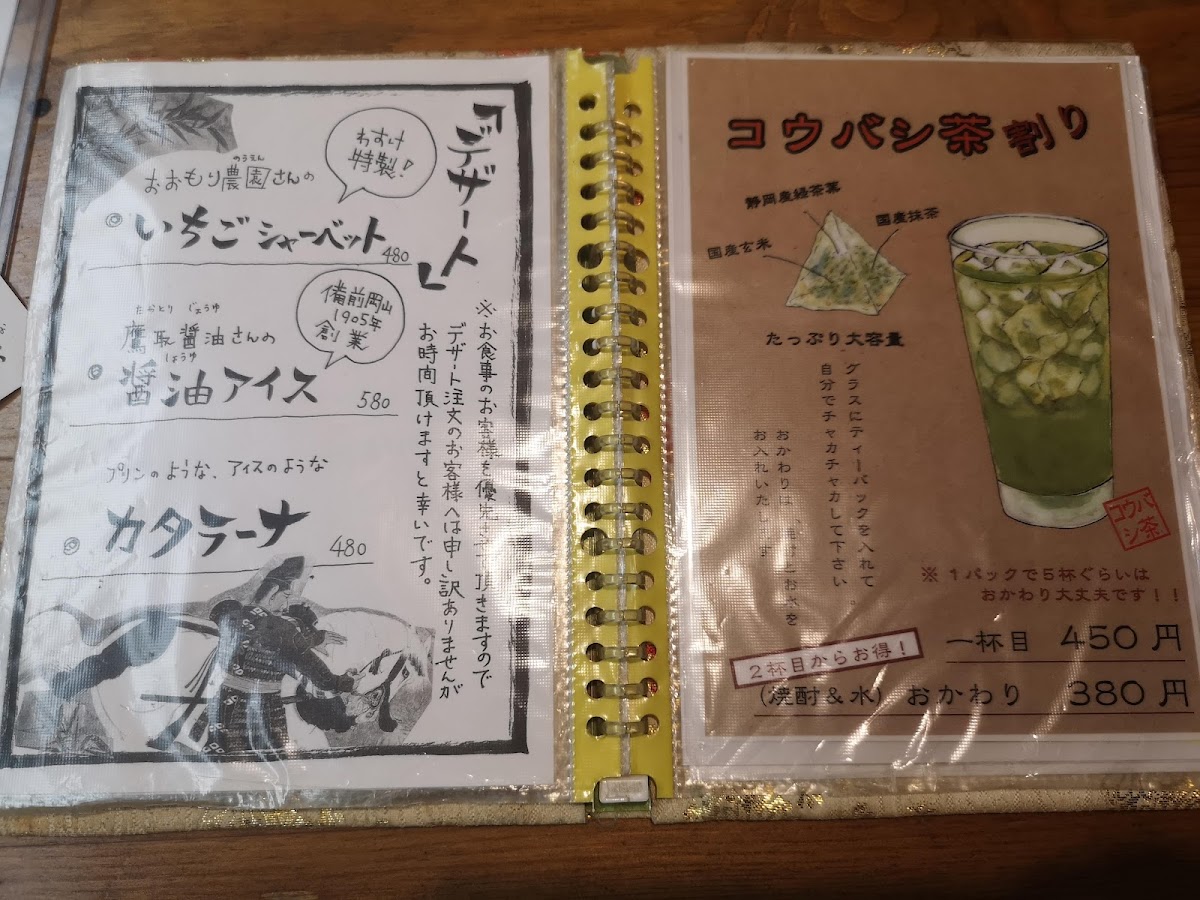 『デザート』
わすけ
特製！
のうえん
おおもり農園さんの
◎いちごシャーベット 480
備前岡山
1905年
創業
たかとり じょうゆ
鷹取醤油さんの
しょうゆ
◎醤油アイス 580
プリンのような、アイスのような
◎カタラーナ 480
※お食事のお客様を優先させて頂きますので
デザート注文のお客様へは申し訳ありませんが
お時間頂けますと幸いです。
コウバシ茶割り
静岡産緑茶葉
国産抹茶
国産玄米
たっぷり大容量
グラスにティーパックを入れて
自分でチャカチャカして下さい。
おかわりは、焼酎とお水を
お入れいたします
コウバ
シ茶
※１パックで５杯ぐらいは
おかわり大丈夫です！！
一杯目 450円
２杯目からお得！
(焼酎＆水) おかわり 380円